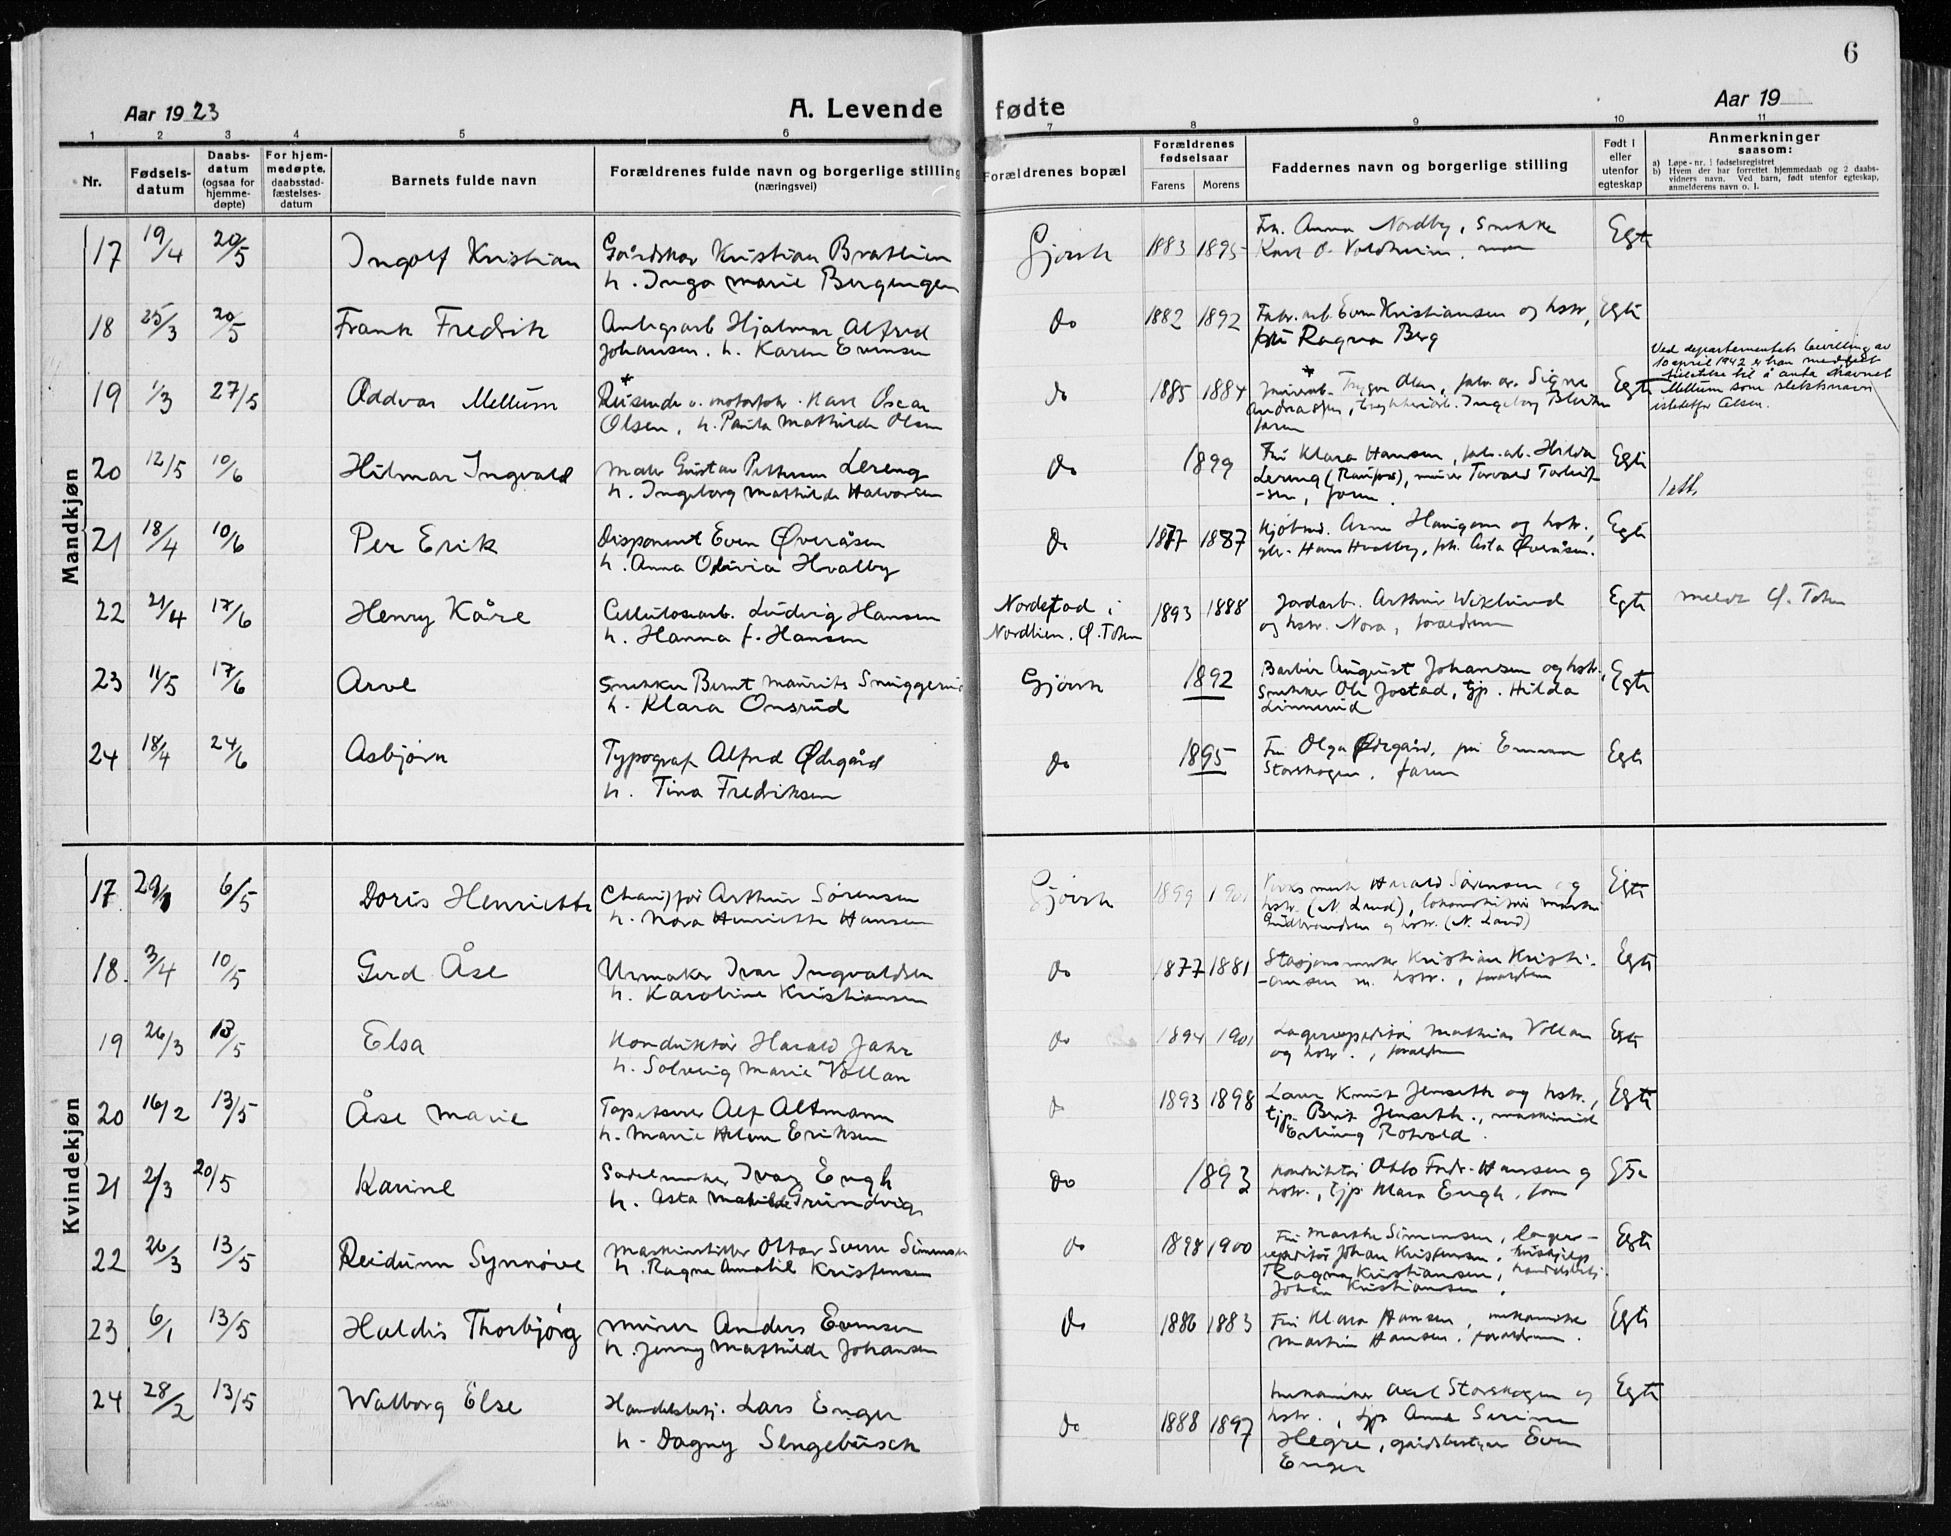 6
Aar 1923
A. Levende fødte
Aar 19
1 2 3 4 5 6 7 8 9 10 11
Nr.
Fødsels-
datum
Daabs-
datum
(ogsaa for
hjemme-
døpte)
For hjem-
medøpte,
daabsstad-
fæstelses-
datum
Barnets fulde navn
Forældrenes fulde navn og borgerlige stilling
(næringsvei)
Forældrenes bopæl
Forældrenes
fødselsaar
Farens Morens
Faddernes navn og borgerlige stilling
Født i
eller
utenfor
egteskap
Anmerkninger
saasom:
a) Løpe-nr. i fødselsregistret
b) Hvem der har forrettet hjemmedaab og 2 daabs-
vidners navn. Ved barn, født utenfor egteskap,
anmelderens navn o. l.
Mandkjøn
17 19/4 20/5 Ingolf Kristian Kristian Brathien Gjøvik 1883 1895 Anna Nordby, Egte
h. Inga Marie Bergengen
18 25/3 20/5 Frank Fredrik Hjalmar Alfred do 1882 1892 Fabr. arb. Even Kristiansen og hstr., Egte
Johansen. h. Karen Evensen Ragna Berg
19 1/3 27/5 Oddvar Mellum Reisende Karl Oscar do 1885 1884 Olsen, Signe Egte
Olsen, h. Paula Mathilde Olsen Ingeborg
Ved departementets bevilling av
10 april 1942 er han meddelt
tillatelse til å anta navnet
Mellum som slektsnavn
istedetfor Olsen.
20 12/5 10/6 Hilmar Ingvald Maler Gustav Pettersen Lereng do 1899 Fru Klara Hansen, fabr. arb. Hilda Egte
h. Ingeborg Mathilde Halvorsen Lereng (Raufoss), murer Torvald Torleif-
-sen, faren.
21 18/4 10/6 Per Erik Disponent Even Øveråsen do 1877 1887 Kjøbmd. Arne og hstr., Egte
h. Anna Olivia Hvalby Hans Hvalby, frk. Asta Øveråsen.
22 21/4 17/6 Henry Kåre Cellulosearb. Ludvig Hansen Nordstad i 1893 1888 Jordarb. Arthur Wiklund Egte
h. Hanna f. Hansen Nordlien. Ø. Toten og hstr. Nora, forældrene
meldt Ø. Toten
23 11/5 17/6 Arve Snekker Bernt Maurits Gjøvik 1892 Barber August Johansen og hstr., Egte
h. Klara Onsrud Snekker Ole Jostad, tjp. Hilda
Linnerud
24 18/4 24/6 Asbjørn Typograf Alfred Ødegård do 1895 Fru Olga Ødegård, Egte
h. Tina Fredriksen Storskogen, faren
Kvindekjøn
17. 29/1 6/5 Doris Henriette Chauffør Arthur Sørensen Gjøvik 1899 1901 Harald Sørensen og Egte
h. Nora Henriette Hansen hstr. (N. Land),
Gudbrandsen og hstr. (N. Land)
18. 3/4 10/5 Gerd Åse Urmaker Ivar Ingvaldsen do 1877 1881 Stasjonsmester Kristian Kristi- Egte
h. Karoline Kristiansen -ansen m. hstr., forældrene
19 26/3 13/5 Elsa Konduktør Harald Jahr do 1894 1901 Lagerexpeditør Mathias Vollan Egte
h. Solveig Marie Vollan og hstr., forældrene
20 16/2 13/5 Åse Marie Tapetserer Alf Altmann do 1893 1898 Knut Jenseth og hstr., Egte
h. Marie Helene Eriksen tjp. Berit Jenseth, maskinist
Erling Rotvold.
21 2/3 20/5 Karine Sadelmaker Ivar Engh do 1893 Konduktør Otto Fredr. Hansen og
h. Asta Mathilde Grundvig hstr., tjp. Klara Engh,
22 26/3 13/5 Reidunn Synnøve Sverre Simensen do 1898 1900 Fru Marthe Simensen, lager- Egte
h. Ragna Amalie Kristensen Johan Kristensen,
Ragna Kristiansen,
Johan Kristiansen.
23 6/1 13/5 Haldis Thorbjørg Murer Anders Evensen do 1886 1883 Fru Klara Hansen, mekaniker Egte
h. Jenny Mathilde Johansen Martin Hansen, forældrene.
24 28/2 13/5 Walborg Else Handelsbetj. Lars Enger do 1888 1897 Mekaniker Axel Storskogen og Egte
h. Dagny Sengebusch hstr., tjp. Anne Serine
Hegre, gårdsbestyrer Even
Enger